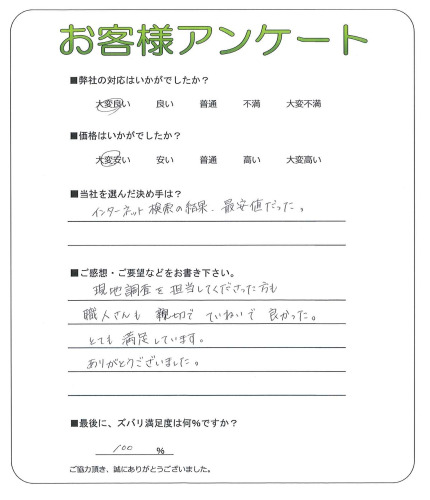 お客様アンケート
■弊社の対応はいかがでしたか？
大変良い 良い 普通 不満 大変不満
■価格はいかがでしたか？
大変安い 安い 普通 高い 大変高い
■当社を選んだ決め手は？
インターネット検索の結果、最安値だった。
■ご感想・ご要望などをお書き下さい。
現地調査を担当してくださった方も
職人さんも親切でていねいで良かった。
とても満足しています。
ありがとうございました。
■最後に、ズバリ満足度は何％ですか？
100 ％
ご協力頂き、誠にありがとうございました。